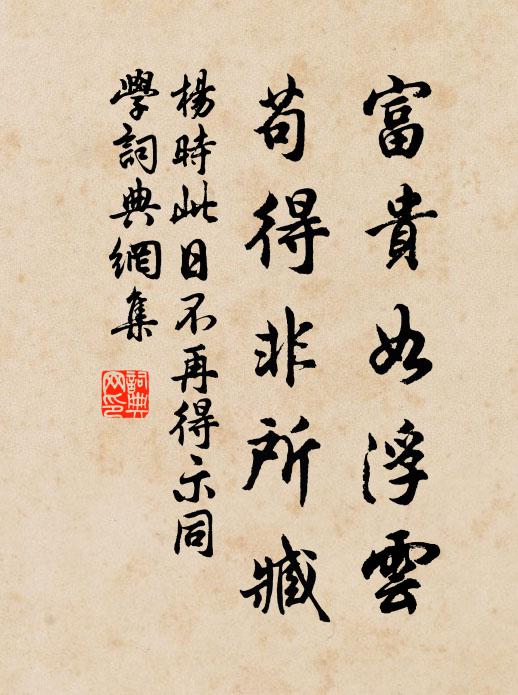 富貴如浮雲
苟得非所臧
楊時此日不再得示同
學詞典網集
詞典網印